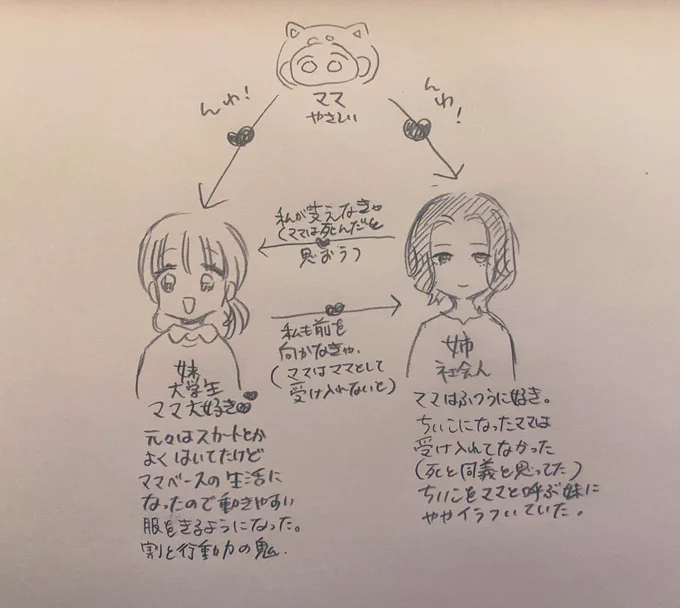 んゎ!
んゎ!
ママ
やさしい
私が支えなきゃ
(ママは死んだと
思おうっ
私も前を
向かなきゃ.
(ママはママとして
受け入れないと)
妹
大学生
ママ大好き
元々はスカートとか
よくはいてたけど
ママベースの生活に
なったので動きやすい
服をきるようになった。
割と行動力の鬼.
姉
社会人
ママはふつうに好き。
ちいこになったママは
受け入れてなかった
(死と同義と思ってた)
ちいこをママと呼ぶ妹に
ややイラついていた。